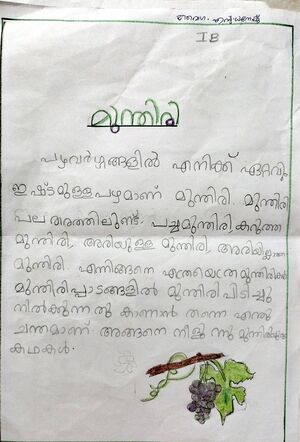 I B
മുന്തിരി
പഴവർഗ്ഗങ്ങളിൽ എനിക്ക് ഏറ്റവും
ഇഷ്ടമുള്ള പഴമാണ് മുന്തിരി. മുന്തിരി
പല തരത്തിലുണ്ട്. പച്ചമുന്തിരി, കറുത്ത
മുന്തിരി, അരിയുള്ള മുന്തിരി, അരിയില്ലാത്ത
മുന്തിരി. എന്നിങ്ങനെ എത്രയെത്ര മുന്തിരികൾ
മുന്തിരിപ്പാടങ്ങളിൽ മുന്തിരി പിടിച്ചു
നിൽക്കുന്നതു കാണാൻ തന്നെ എന്തു
ചന്തമാണ്. അങ്ങനെ നീളുന്നു മുന്തിരിയുടെ
കഥകൾ.